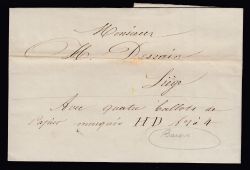 Monsieur
M. Dessain
Liège
Avec quatre ballots de
Papier marqués HD 1 à 4